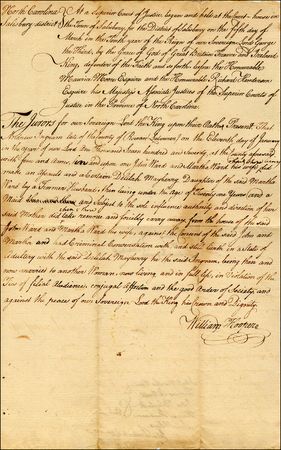 North Carolina At a Superior Court of Justice, begun and held at the Court-house in
Salisbury district the Town of Salisbury for the District of Salisbury on the fifth day of
March in the tenth year of the Reign of our Sovereign Lord George
the Third, by the Grace of God of Great Britain France and Ireland
King, defender of the Faith and so forth before the Honourable
Maurice Moore Esquire and the Honourable Richard Henderson
Esquire his Majesty's Associate Justices of the Superior Courts of
Justice in the Province of North Carolina.
The Jurors for our Sovereign Lord the King upon their Oath Present That
Ingram late of the County of Rowan on the Eleventh day of January
in the year of our Lord One thousand seven hundred and seventy at the County aforesaid
with force and Arms in and upon one John Ward and Martha Ward his wife did
make an Assault and a Certain Delilah Mayberry Daughter of the said Martha
Ward by a former Husband then being under the age of Twenty one years and
then and there Subject to the sole reference authority and direction of her
said Mother did take remove and forcibly carry away from the house of the said
John Ward and Martha Ward his wife, against the Consent of the said John and
Martha and had Criminal Conversation with and did live in a state of
Adultery with the said Delilah Mayberry he the said Ingram, being then and
now married to another Woman, now living and in full life, in Violation of the
Ties of filial Obedience conjugal Affection and the good Order of Society and
against the peace of our Sovereign Lord the King his Crown and Dignity
William Hooper